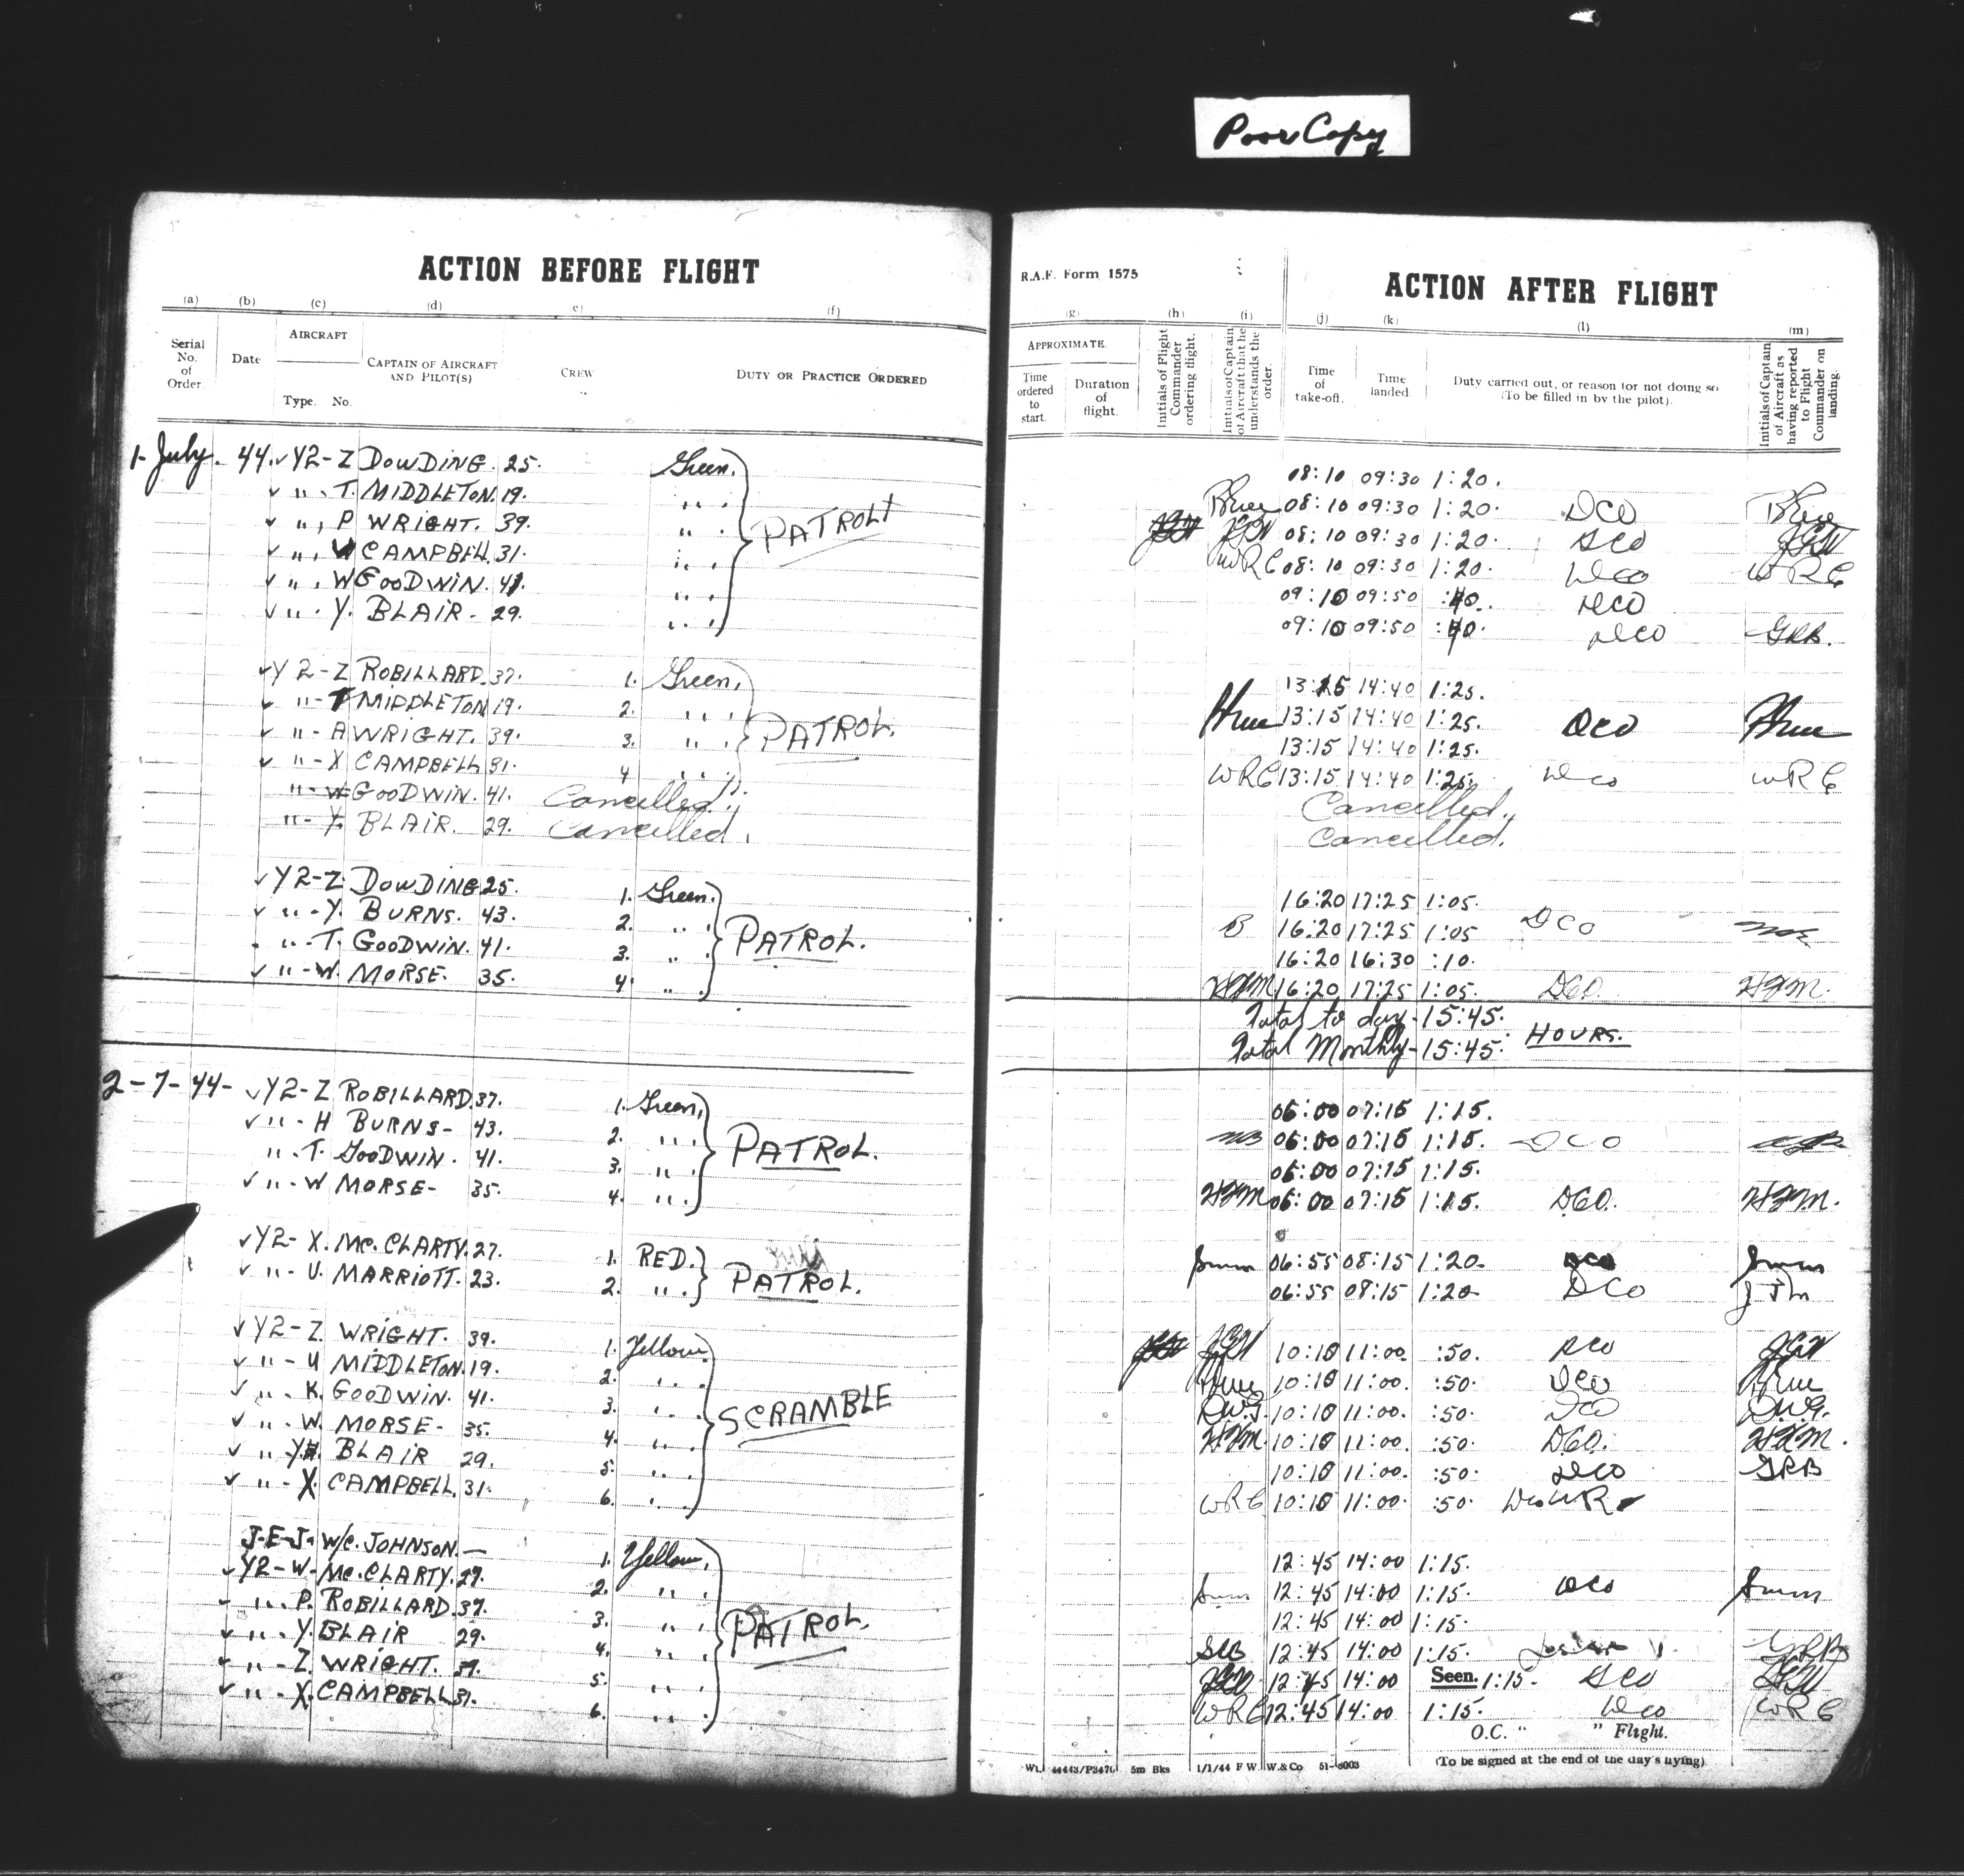 Poor Copy
ACTION BEFORE FLIGHT
(a) (b) (c) (d) e) (f)
Serial No. of Order.
Date
AIRCRAFT
Type. No.
CAPTAIN OF AIRCRAFT AND PILOT(S)
CREW
DUTY OR PRACTICE ORDERED
1-July. 44. Y2-Z DOWDING. 25. Green.
" . T. MIDDLETON. 19. " .
" , P WRIGHT. 39. " .
PATROL
" , CAMPBELL 31. " .
" . W GOODWIN. 41. " .
" . Y. BLAIR - 29. " .
Y2-Z ROBILLARD. 37. 1. Green.
"-T MIDDLETON 19. 2. " .
"- A WRIGHT. 39. 3. " .
PATROL.
"-X CAMPBELL 31. 4 " .
"-W GOODWIN. 41. Cancelled.
"-Y. BLAIR. 29. Cancelled.
Y2-Z. DOWDING 25. 1. Green.
"-Y. BURNS. 43. 2. " .
"-T. GOODWIN. 41. 3. " .
PATROL.
"-W. MORSE. 35. 4. " .
2-7-44- Y2-Z ROBILLARD. 37. 1. Green.
" - H BURNS- 43. 2. " .
" . T. GOODWIN. 41. 3. " .
PATROL.
" - W MORSE- 35. 4. " .
Y2- X. MC. CLARTY. 27. 1. RED.
" - U. MARRIOTT. 23. 2. " .
PATROL.
Y2-Z. WRIGHT. 39. 1. Yellow.
" - U MIDDLETON. 19. 2. " .
" . K. GOODWIN. 41. 3. " .
SCRAMBLE
" - W. MORSE- 35. 4. " .
" Y. BLAIR 29. 5. " .
" - X. CAMPBELL. 31. 6. " .
J-E-J. W/C. JOHNSON. — 1. Yellow.
Y2-W- MC. CLARTY. 27. 2. " .
" . P. ROBILLARD. 37. 3. " .
PATROL.
" . Y. BLAIR 29. 4. " .
" - Z. WRIGHT. 39. 5. " .
" - X. CAMPBELL 31. 6. " .
R.A.F. Form 1575
ACTION AFTER FLIGHT
(g) (h) (i) (j) (k) (l) (m)
APPROXIMATE.
Time ordered to start.
Duration of flight.
Initials of Flight Commander ordering flight.
Initials of Captain of Aircraft that he understands the order.
Time of take-off.
Time landed
Duty carried out, or reason for not doing so
(To be filled in by the pilot).
Initials of Captain of Aircraft as having reported to Flight Commander on landing.
08:10 09:30 1:20.
08:10 09:30 1:20. DCO
08:10 09:30 1:20. DCO
WRC 08:10 09:30 1:20. DCO WRC
09:10 09:50 :40. DCO
09:10 09:50 :40. DCO GRB.
13:15 14:40 1:25.
13:15 14:40 1:25. DCO
13:15 14:40 1:25.
WRC 13:15 14:40 1:25. DCO WRC
Cancelled.
Cancelled.
16:20 17:25 1:05.
B 16:20 17:25 1:05 DCO
16:20 16:30 :10.
HFM 16:20 17:25 1:05. DCO. HFM.
Total to day-15:45.
Total Monthly-15:45. HOURS.
06:00 07:15 1:15.
06:00 07:15 1:15. DCO
06:00 07:15 1:15.
HFM 06:00 07:15 1:15. DCO. HFM.
06:55 08:15 1:20. DCO
06:55 08:15 1:20. DCO
JGW 10:10 11:00. :50. DCO JGW
10:10 11:00. :50. DCO
D.W.G. 10:10 11:00. :50. DCO D.W.G.
HFM. 10:10 11:00. :50. DCO. HFM.
10:10 11:00. :50. DCO GRB
WRC 10:10 11:00. :50.
12:45 14:00 1:15.
12:45 14:00 1:15. DCO
12:45 14:00 1:15.
GRB 12:45 14:00 1:15. GRB
12:45 14:00 Seen. 1:15. DCO
WRC 12:45 14:00 1:15. DCO WRC
O.C. " " Flight.
(To be signed at the end of the day's flying)
5m Bks 1/1/44 F.W. W.&Co